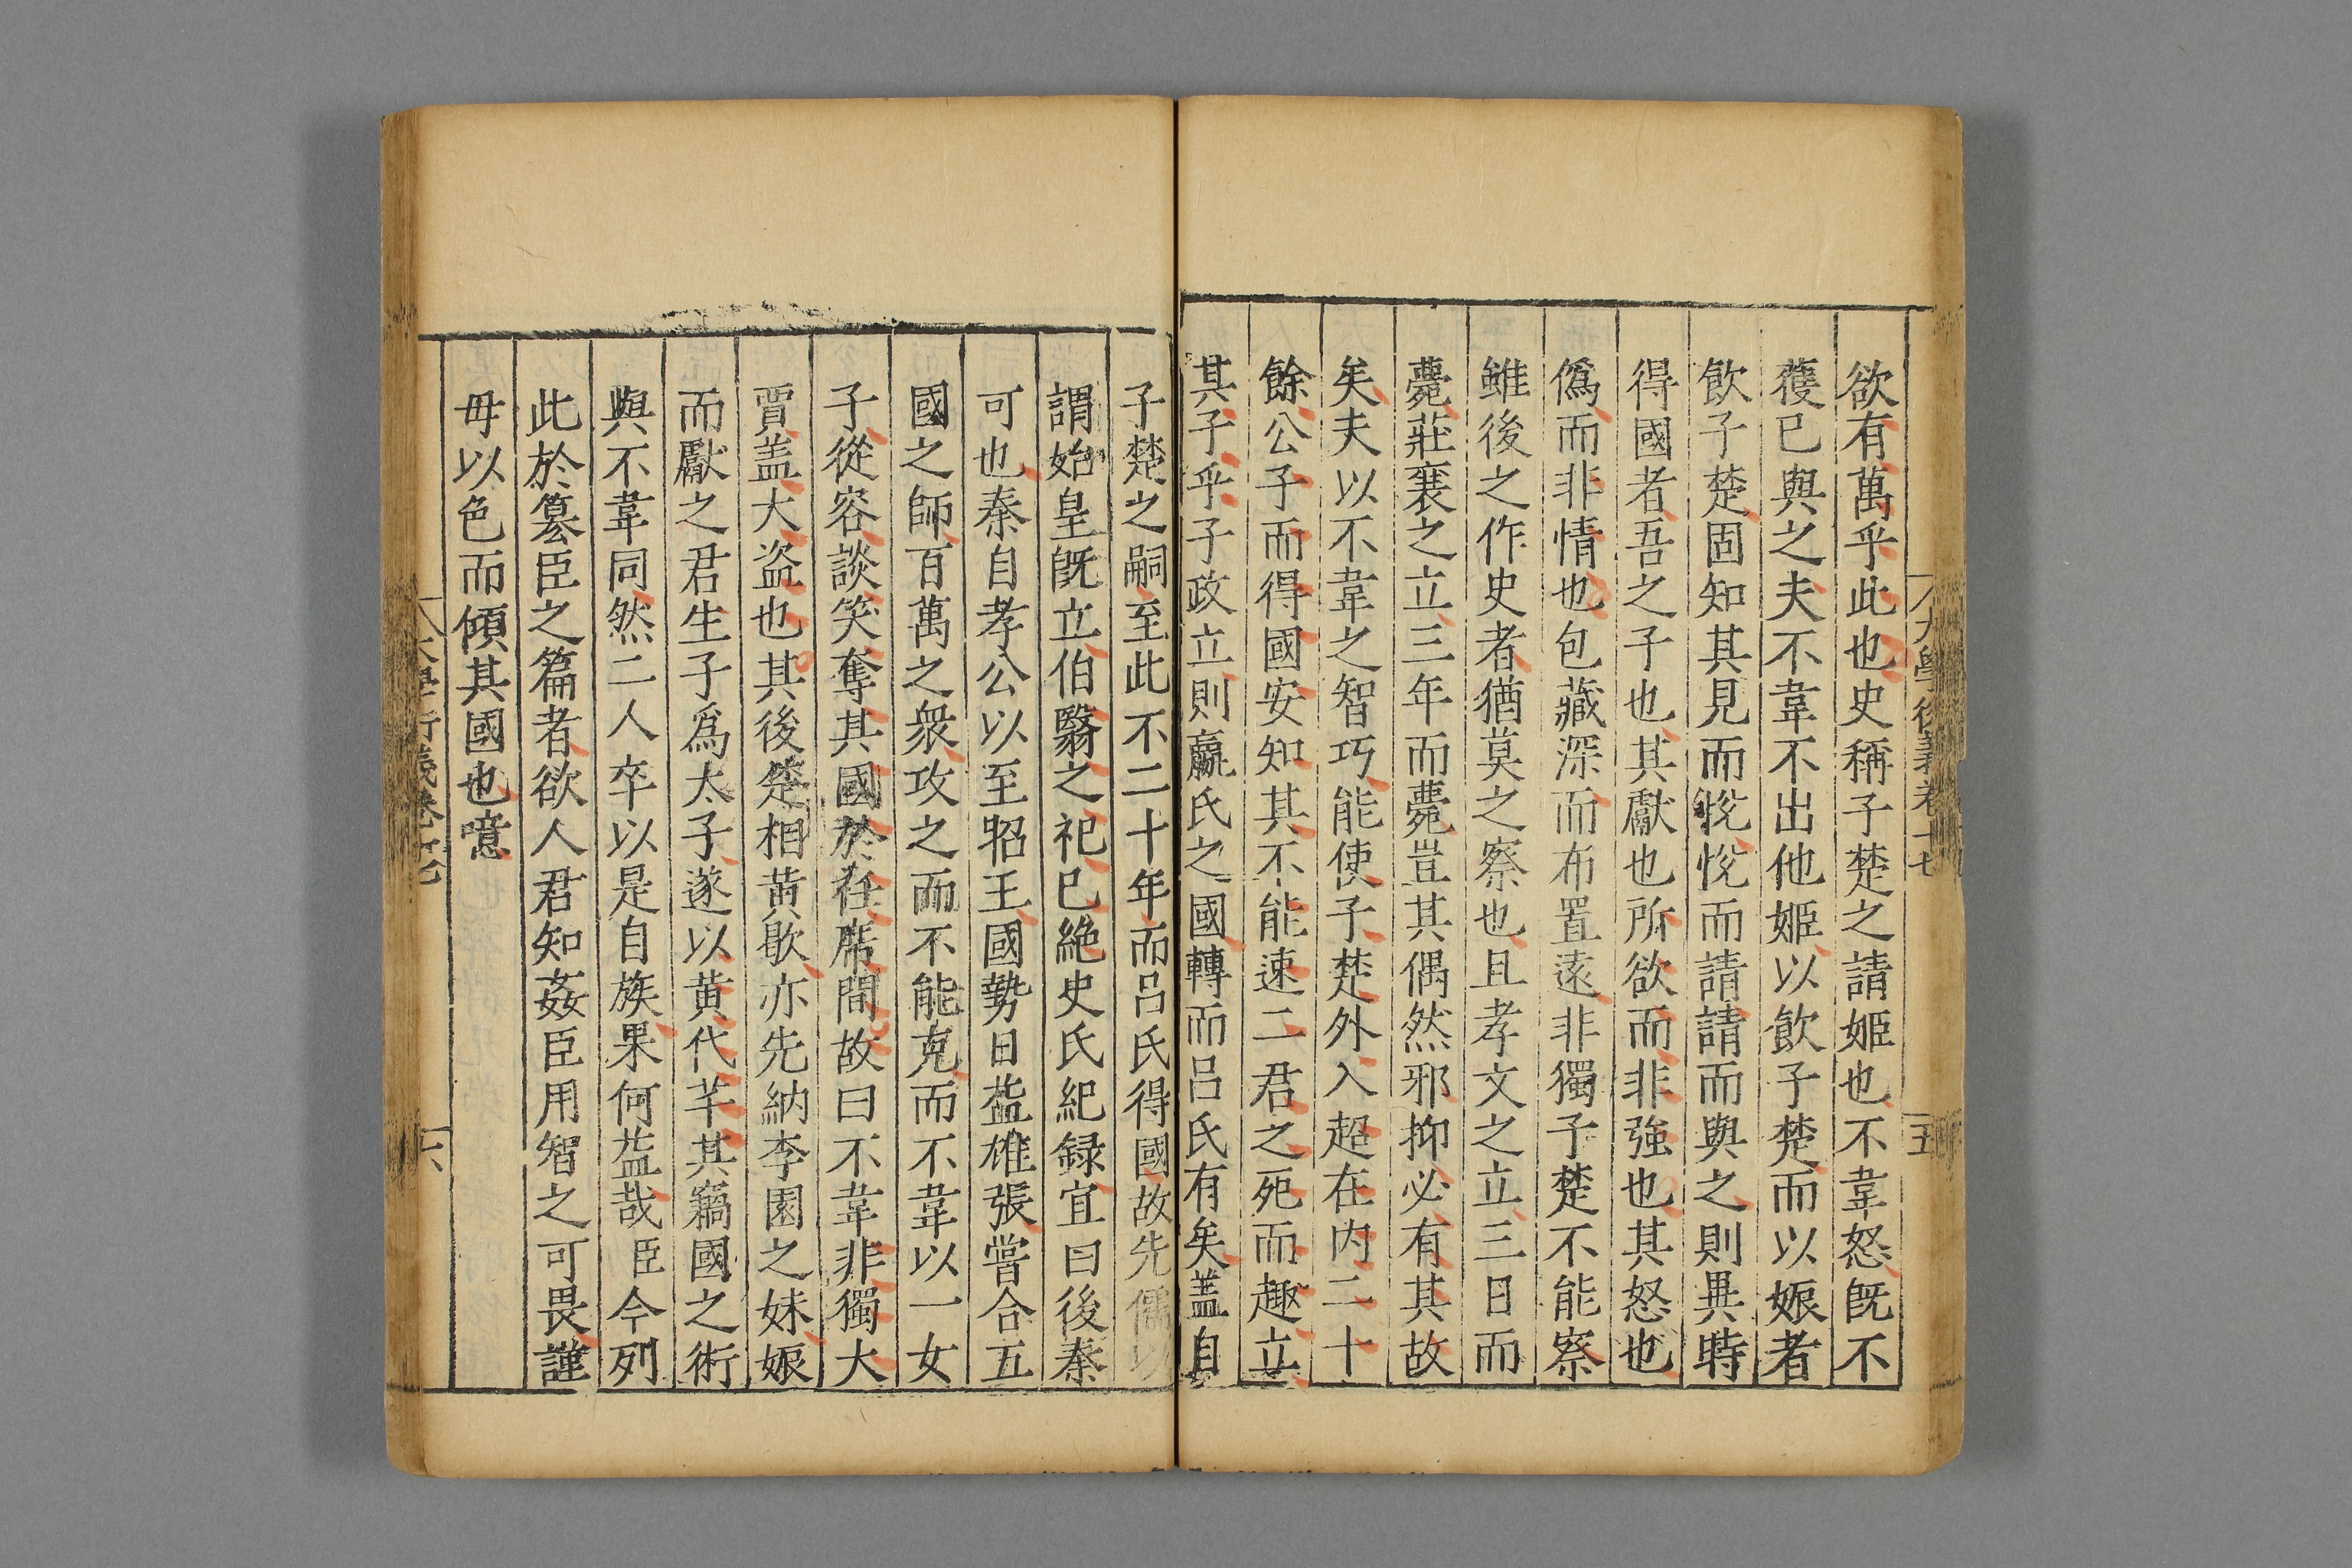 欲有萬乎此也史稱子楚之請姬也不韋怒旣不
獲已與之夫不韋不出他姬以飲子楚而以娠者
飲子楚固知其見而恱恱而請請而與之則異時
得國者吾之子也其獻也所欲而非強也其怒也
僞而非情也包藏深而布置遠非獨子楚不能察
雖後之作史者猶莫之察也且孝文之立三日而
薨莊襄之立三年而薨豈其偶然邪抑必有其故
矣夫以不韋之智巧能使子楚外入超在内二十
餘公子而得國安知其不能速二君之死而趣立
其子乎子政立則嬴氏之國轉而呂氏有矣蓋自
子楚之嗣至此不二十年而呂氏得國故先儒以
謂始皇旣立伯翳之祀已絶史氏紀録宜曰後秦
可也秦自孝公以至昭王國勢日益雄張嘗合五
國之師百萬之衆攻之而不能克而不韋以一女
子從容談笑奪其國於衽席間故曰不韋非獨大
賈盖大盗也其後楚相黄歇亦先納李園之妹娠
而獻之君生子爲太子遂以黄代芊其竊國之術
與不韋同然二人卒以是自族果何益哉臣今列
此於簒臣之篇者欲人君知姦臣用智之可畏謹
毋以色而傾其國也噫